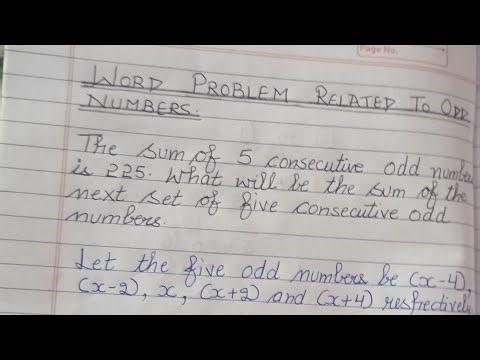 Page No.
WORD PROBLEM RELATED TO ODD
NUMBERS.
The sum of 5 consecutive odd number
is 225. What will be the sum of the
next set of five consecutive odd
numbers.
Let the five odd numbers be (x-4),
(x-2), x, (x+2) and (x+4) respectively